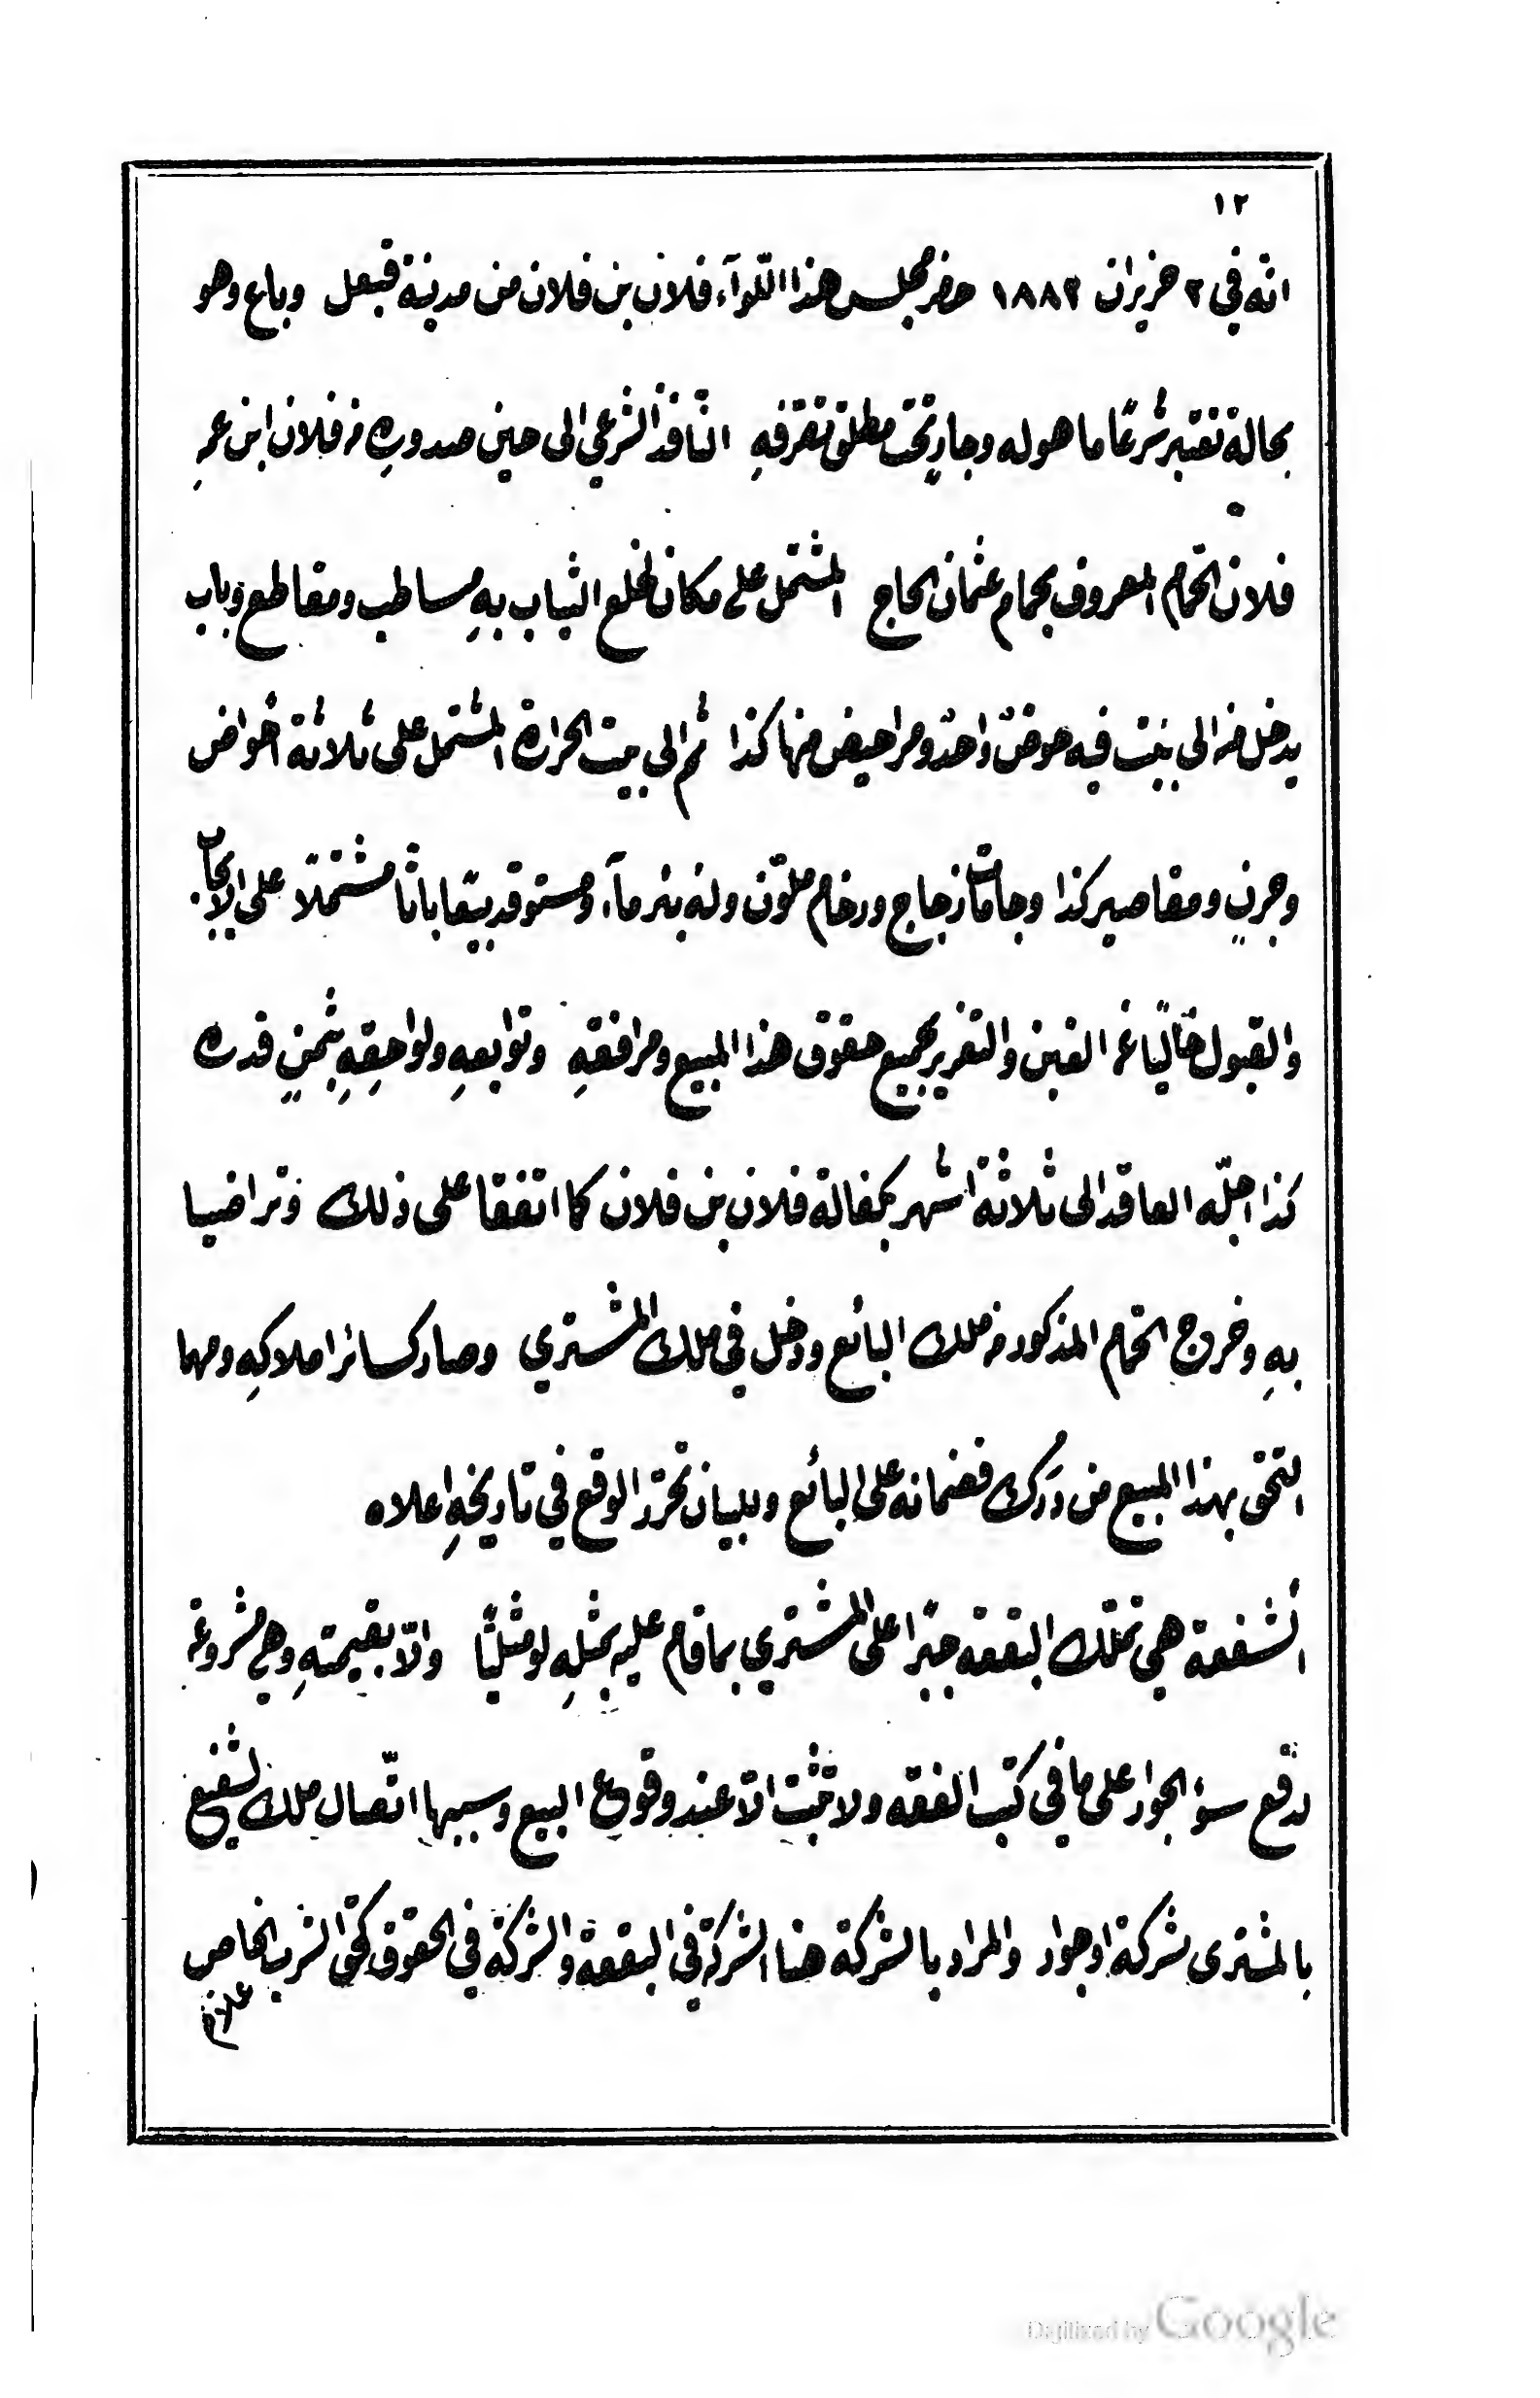 ١٢
انّه في ٢ حزيران ١٨٨٢ حضر لمجلس هذا اللّوآء فلان بن فلان من مدينة وباع وهو
بحالة تعتبر شرعًا ما هو له وجارٍ تحت مطلق تصرّفهِ النّافذ الشرعي الى حين صدورهِ من فلان ابن عمرِ
فلان الحمّام المعروف بحمام عثمان الحاج المشتمل على مكان لخلع الثياب بهِ مساطب ومقاطع وباب
يدخل منه الى بيت فيه حوضٌ واحدٌ ومراحيض منها كذا ثم الى بيت الحرارة المشتمل على ثلاثة أحواض
وجرنٍ ومقاصير كذا وجامات زجاج ورخام ملوّن وله بئر مآء ومستوقد بيعًا باتًا مشتملًا على الايجاب
والقبول خاليًا عن الغبن والتغرير بجميع حقوق هذا المبيع ومرافقهِ وتوابعهِ ولواحقِهِ بثمنٍ قدره
كذا اجلّه العاقد الى ثلاثة اشهر بكفالة فلان بن فلان كما اتفقا على ذلك وتراضيا
بهِ وخروج الحمام المذكور من ملك البائع ودخل في ملك المشتري وصار كسائر املاكهِ ومهما
التحق بهذا المبيع من دَرَك فضمانه على البائع وللبيان تحرّر الوقع في تاريخهِ اعلاه
الشفعة هي تملّك البقعه جبرًا على المشتري بما قام عليه بمثلِهِ لو مثليًّا والّا بقيمتهِ وهي مشروعة
لدفع سوء الجوار على ما في كتب الفقه ولا تثبت الّا عند وقوع البيع وسببها اتّصال ملك الشفيع
بالمشترى بشركة او جوار والمراد بالشركة هنا الشركة في البقعة والشركة في الحقوق كحق الشرب الخاص